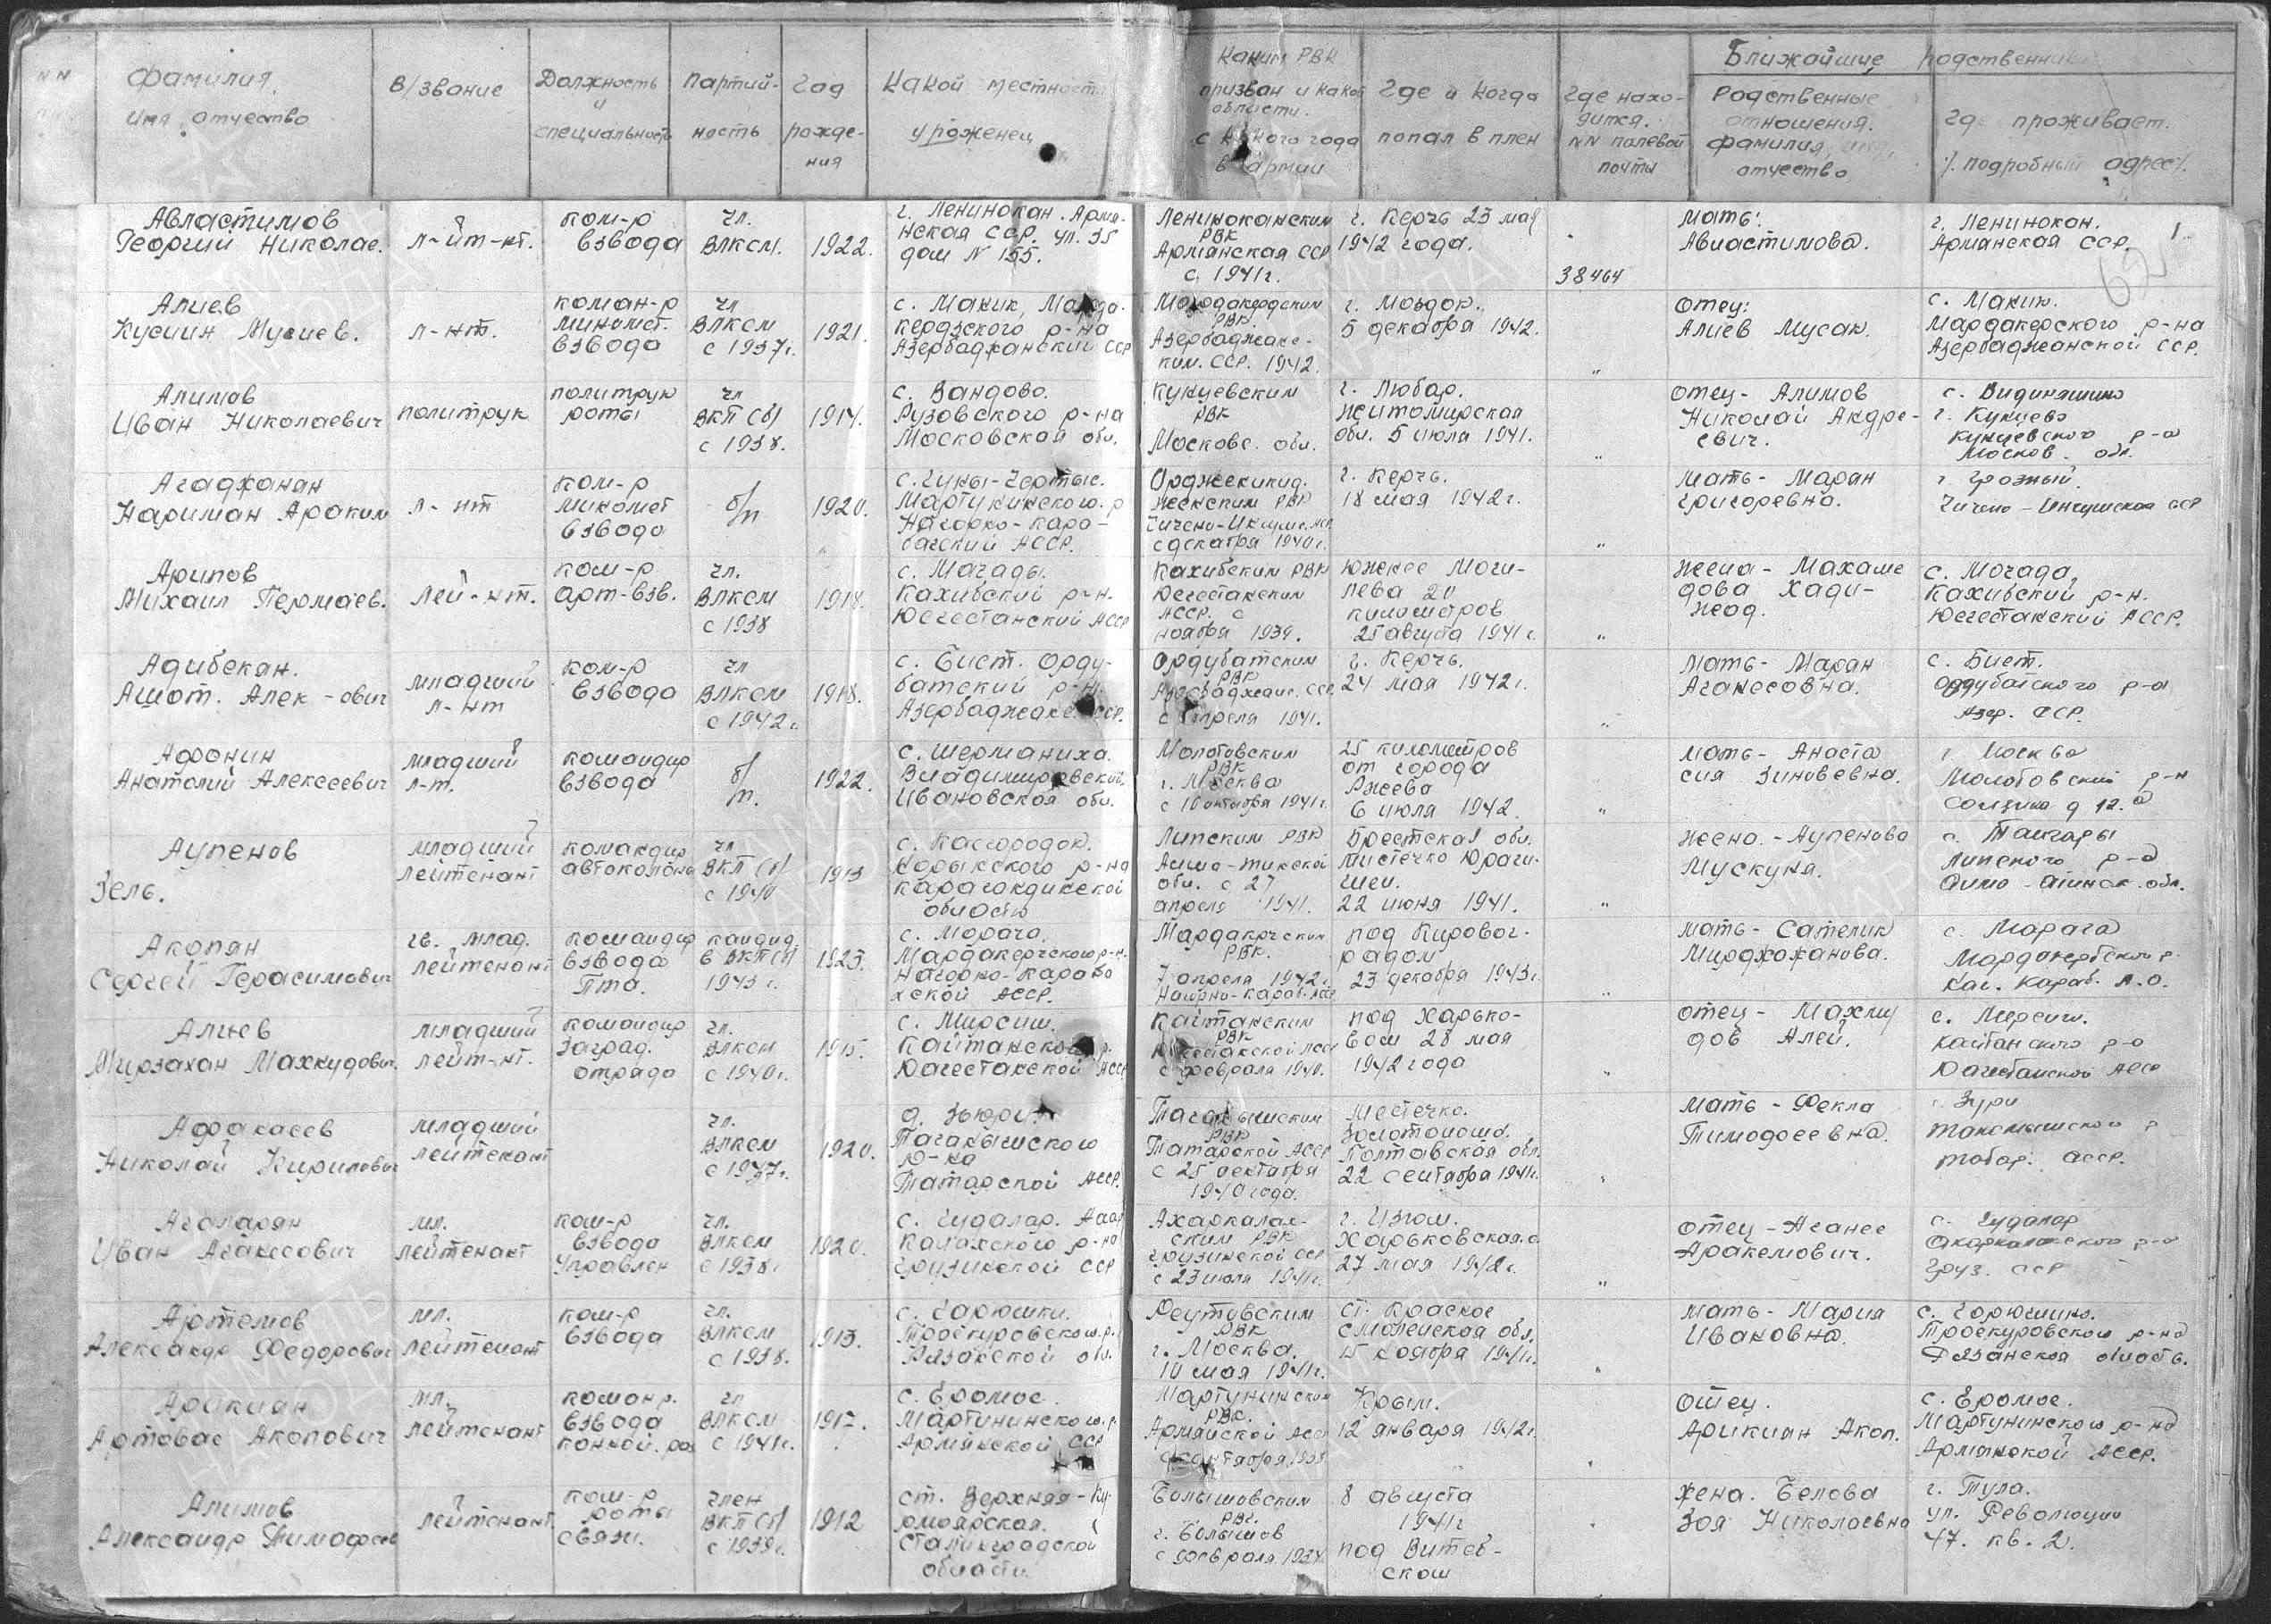 NN
фамилия,
имя, отчество
В/звание
Должность
и
специальность
Партий-
ность
Год
рожде-
ния
Какой местности
уроженец
Каким РВК
призван и какой
области.
с какого года
в армии
Где и когда
попал в плен
Где нахо-
дится.
NN полевой
почты
Ближайшие родственники
Родственные
отношения.
фамилия, имя,
отчество
Где проживает.
/. подробный адрес/.
1.
62
Авластимов
Георгий Николае.
л-йт-нт.
ком-р
взвода
чл.
ВЛКСМ.
1922.
г. Ленинокан. Армя-
нская ССР. ул. 35
дом N 155.
Лениноканским
РВК
Армянская ССР
с. 1941г.
г. Керчь 23 мая
1942 года.
38464
мать:
Авиастимова.
г. Ленинокон.
Армянская ССР.
Алиев
Кусиин Мусиев.
л-нт.
коман-р
миномет.
взвода
чл
ВЛКСМ
с 1937г.
1921.
с. Макик,
кердзского р-на
Азербаджанский ССР
РВК.
Азербаджанс-
ким. ССР. 1942.
г. Моздок.
5 декабря 1942.
"
отец:
Алиев Мусак.
с. Макик.
Мардакерского р-на
Азербаджанской ССР.
Алимов
Иван Николаевич
политрук
политрук
роты
чл
ВКП(б)
с 1938.
1914.
с. Вандово.
Рузовского р-на
Московской обл.
Кунцевским
РВК
Московс. обл.
г. Любар.
Житомирская
обл. 5 июля 1941.
"
отец- Алимов
Николай Андре-
евич.
г. Кунцево
Кунцевского р-а
Москов. обл.
Агаджанян
Нариман Араким
л-нт
ком-р
миномет
взвода
б/п
1920.
Мартунинского. р
Нагорно-Каро-
багский АССР.
Орджекинид.
жеиским РВК
с декабря 1940г.
г. Керчь.
18 мая 1942г.
"
мать- Марян
Григоревна.
г. Грозный.
Чичено-Ингушская ССР
Арипов
Михаил Пермаев.
лей-нт.
ком-р
арт-взв.
чл.
ВЛКСМ
с 1938
1918.
с. Мачады.
Кахибский р-н.
Дагестанский АССР
Кахибским РВК
Дагестанским
АССР. с
ноября 1939.
южнее Моги-
лева 20
километров
25 августа 1941г.
"
жена- Махаме
дова Хади-
жод.
с. Мочада,
Кахибский р-н.
Дагестанский АССР.
Адибекян.
Ашот. Алек-ович
младший
л-нт
ком-р
взвода
чл
ВЛКСМ
с 1942г.
1918.
с. Бист. Орду-
батский р-н.
Азербаджанс. ССР.
Ордубатским
РВК
Азербаджанс. ССР.
с апреля 1941.
г. Керчь.
24 мая 1942г.
"
мать- Марян
Аганесовна.
с. Бист.
Ордубатского р-а
Азер. ССР.
Афонин
Анатолий Алексеевич
младший
л-т.
командир
взвода
б/
п.
1922.
с. Шерманиха.
Владимировский.
Ивановская обл.
Молотовским
РВК
г. Москва
с 10 октября 1941г.
25 километров
от города
Ржева
6 июля 1942.
"
мать- Анаста
сия Зиновевна.
г Москва
Молотовский р-н
Аупенов
Зель.
младший
лейтенант
командир
автоколоны
чл
ВКП(б)
с 1940
1913
с. Касгородок.
р-на
Карагондинской
области
Липским РВК
обл. с 27
апреля 1941.
Брестская обл.
мистечко Драги-
чен.
22 июня 1941.
"
жена.-Аупенова
Мускуня.
Липского р-а
Акопян
Сергей Герасимович
гв. млад.
лейтенант
командир
взвода
Пта.
кандид.
в ВКП(б)
1943г.
1923.
с. Морага.
Мардакертского р-н.
Нагорно-Карабо
хской АССР.
РВК.
7 апреля 1942г.
Нагорно-Караб. АССР
под Кировог-
радом
23 декабря 1943г.
"
мать-Сателик
Мирджожанова.
с. Марага
Наг. Караб. А.О.
Алиев
Мирзахан Махмудович.
младший
лейт-нт.
командир
заград.
отряда
чл.
ВЛКСМ
с 1940г.
1915.
с. Мирсиш.
Кайтанского р.
Дагестанской АССР
Кайтанским
РВК
Дагестанской АССР
с февраля 1940.
под Харько-
вом 28 мая
1942 года
"
отец- Махму
дов Алей.
с. Мирсиш.
Кайтанского р-а
Дагестанской АССР
Афанасев
Николай Кирилович
младший
лейтенант
чл.
ВЛКСМ
1920.
д. Зьюри.
р-на
Татарской АССР.
РВК
Татарской АССР
с 25 октября
1940 года.
местечко.
Золотоноша.
Полтавская обл.
22 сентября 1941г.
мать - Фекла
Тимофеевна.
г. Зури
Татар. АССР.
Агаларян
Иван Аганесович
мл.
лейтенант
ком-р
взвода
управлен
чл.
ВЛКСМ
с 1938г
1920.
с. Гудалар.
калахского р-на
Грузинской ССР
Ахаркалах-
ским РВК
Грузинской ССР
с 23 июля 1941г.
г. Изюм.
Харьковская. о
27 мая 1942г.
"
отец-Аганес
Аракелович.
с. Гудалар
Груз. ССР
Артемов
Александр Федорович
мл.
лейтенант
ком-р
взвода
чл.
ВЛКСМ
с 1938.
1913.
с. Горюшки.
Проскуровского р.
Рязанской обл.
Реутовским
РВК
г. Москва.
10 мая 1941г.
ст. Красное
Смоленская обл.
15 ноября 1941г.
"
мать-Мария
Ивановна.
с. Горюшино.
Проскуровского р-на
Рязанская область.
Арикиан
Артовас Акопович
мл.
лейтенант
коман р.
взвода
конной. раз
чл
ВЛКСМ
с 1941г.
1917.
с. Еромос.
Мартунинского. р.
Армянской ССР
Мартунинским
РВК.
Армянской АССР
Крым.
12 января 1942г.
отец.
Арикиан Акоп.
с. Еромос.
Мартунинского р-на
Армянской АССР.
Алимов
Александр Тимофеев
лейтенант
ком-р
роты
связи.
член
ВКП(б)
с 1939г.
1912
ст. Верхняя-Ку-
рмоярская.
Сталинградской
области.
Болышовским
РВК.
г. Болышов
с февраля 1934.
8 августа
1941г
под Витеб-
ском
жена. Белова
Зоя Николаевна
г. Тула.
ул. Революции
47. кв. 2.